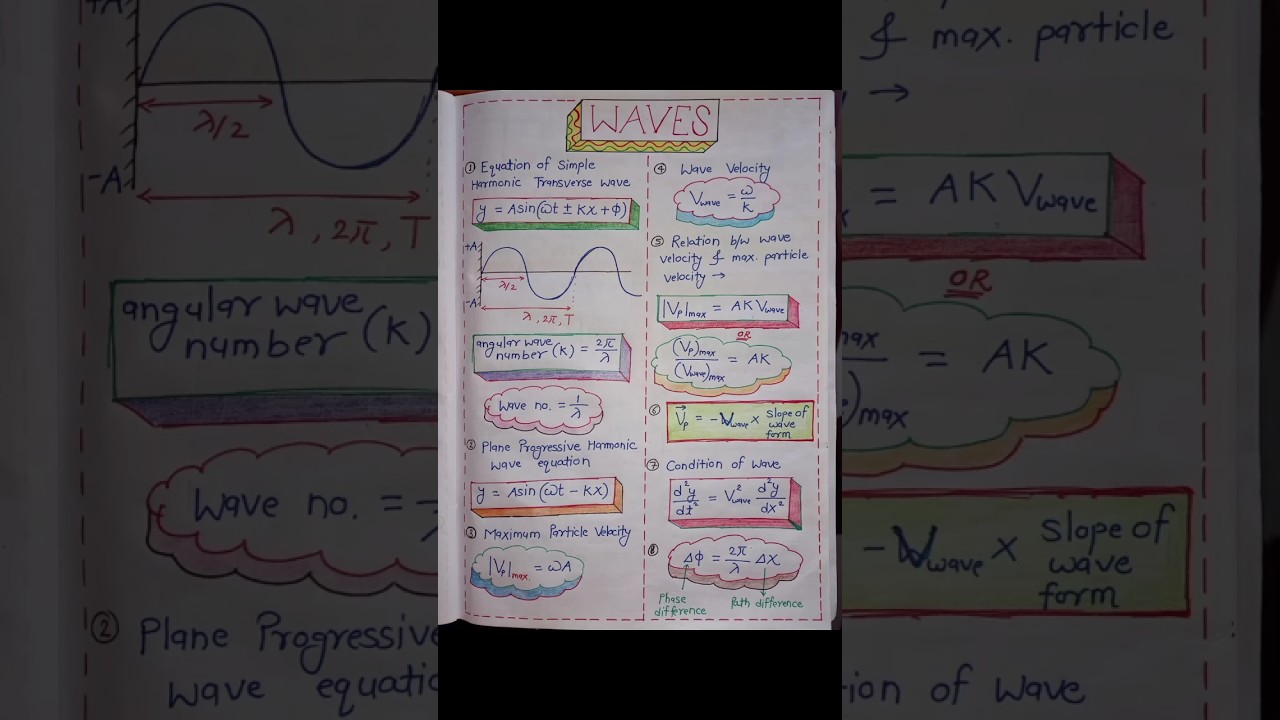 WAVES
① Equation of Simple
Harmonic Transverse wave
y = Asin(ωt ± kx + ϕ)
+A
-A
λ/2
λ, 2π, T
angular wave
number (k) = 2π/λ
wave no. = 1/λ
② Plane Progressive Harmonic
wave equation
y = Asin(ωt - kx)
③ Maximum Particle Velocity
|Vp|max. = ωA
④ Wave Velocity
Vwave = ω/k
⑤ Relation b/w wave
velocity & max. particle
velocity →
|Vp|max = AK Vwave
OR
(Vp)max/(Vwave)max = AK
⑥ V⃗p = -Vwave × Slope of
wave
form
⑦ Condition of wave
d²y/dt² = V²wave d²y/dx²
⑧ Δϕ = 2π/λ Δx
Phase
difference
Path difference
+A
-A
λ/2
λ, 2π, T
angular wave
number (k)
wave no. =
② Plane Progressive
wave equatio
& max. particle
→
= AK Vwave
OR
max
= AK
)max
-Vwave × Slope of
wave
form
tion of wave